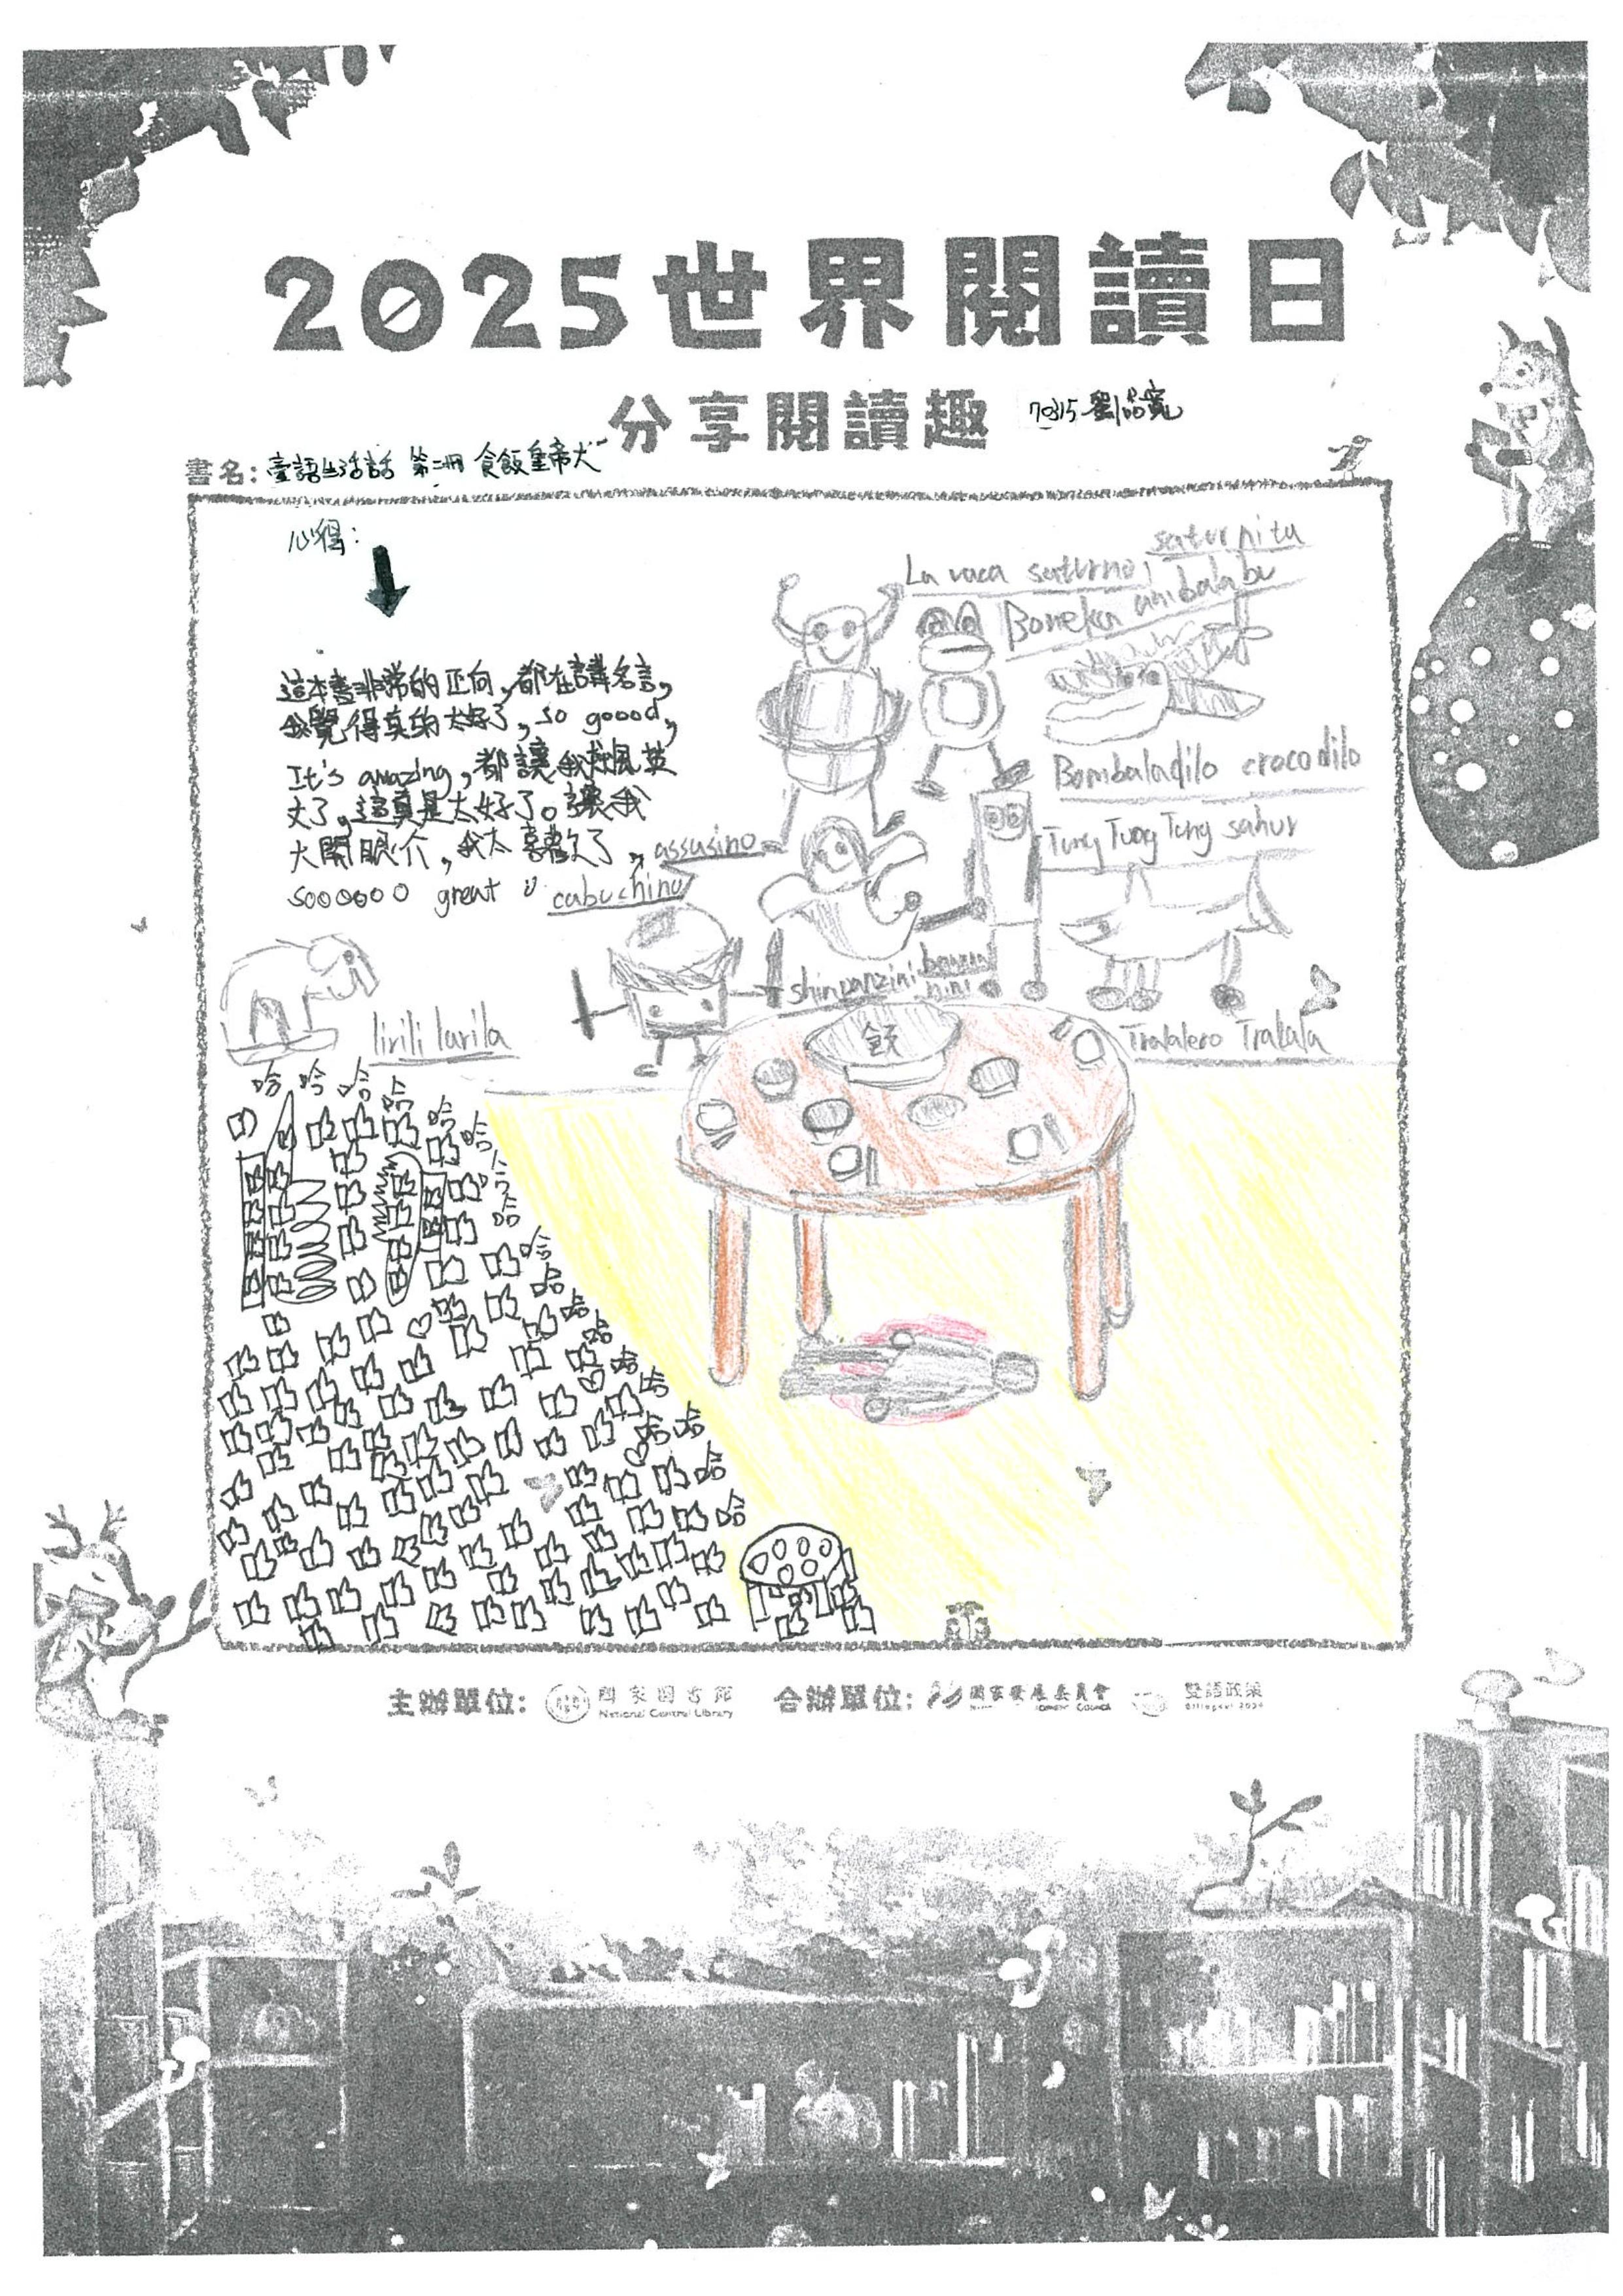 2025世界閱讀日
分享閱讀趣
70315 劉品寬
書名：臺語生活話 第二冊 食飯皇帝大
心得：
這本書非常的正向，都在講名言，
我覺得真的太好了，so goood，
It's amazing，都讓我
丈了，這真是太好了。讓我
大開眼介，我太喜歡了，
sooooo great
La vaca saturno saturnita
Boneka ambalabu
Bombaladilo crocodilo
Tung Tung Tung sahur
assasino
cabuchino
shinpanzini banana nini
Tralalero Tralala
lirili larila
飯
哈 哈 哈 哈 哈 哈
主辦單位： 國家圖書館 合辦單位： 國家發展委員會 雙語政策
National Central Library